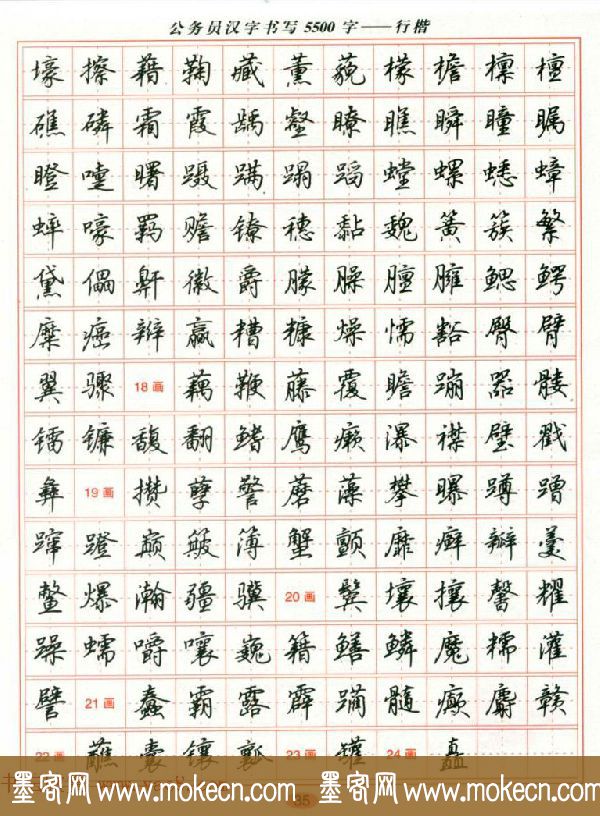 公务员汉字书写5500字——行楷
壕 擦 藉 鞠 藏 薰 藐 檬 檐 檩 檀
礁 磷 霜 霞 龋 壑 瞭 瞧 瞬 瞳 瞩
瞪 嚏 曙 蹑 蹒 蹋 蹈 螳 螺 蟋 蟑
蟀 嚎 羁 赡 镣 穗 黏 魏 簧 簇 繁
黛 儡 鼾 徽 爵 朦 臊 膻 臃 鳃 鳄
糜 癌 辫 赢 糟 糠 燥 懦 豁 臀 臂
翼 骤 18画 藕 鞭 藤 覆 瞻 蹦 嚣 髅
镭 镰 馥 翻 鳍 鹰 癞 瀑 襟 璧 戳
彝 19画 攒 孽 警 蘑 藻 攀 曝 蹲 蹭
蹿 蹬 巅 簸 簿 蟹 颤 靡 癣 瓣 羹
鳖 爆 瀚 疆 骥 20画 鬓 壤 攘 馨 耀
躁 蠕 嚼 嚷 巍 籍 鳝 鳞 魔 糯 灌
譬 21画 蠢 霸 露 霹 躏 髓 癫 麝 赣
22画 蘸 囊 镶 瓤 23画 罐 24画 矗
35
墨客网 www.mokecn.com 墨客网 www.mokecn.com